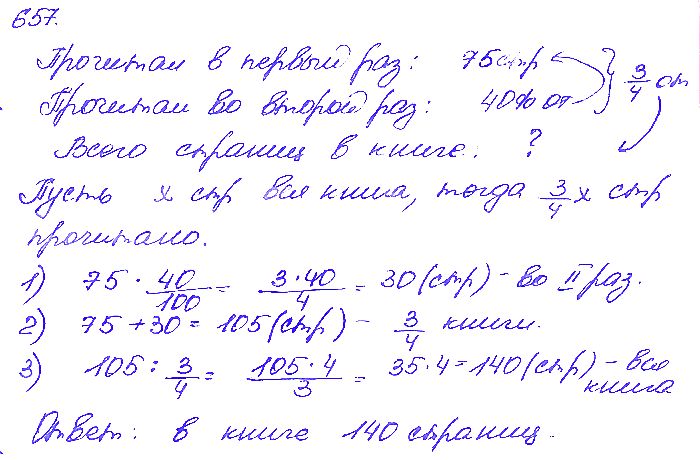 657.
Прочитал в первый раз: 75 стр
Прочитал во второй раз: 40% от } 3/4 от
Всего страниц в книге: ?
Пусть x стр вся книга, тогда 3/4 x стр
прочитано.
1) 75 · 40/100 = 3·40/4 = 30 (стр) - во II раз.
2) 75 + 30 = 105 (стр) - 3/4 книги.
3) 105 : 3/4 = 105·4/3 = 35·4 = 140 (стр) - вся
книга
Ответ: в книге 140 страниц.